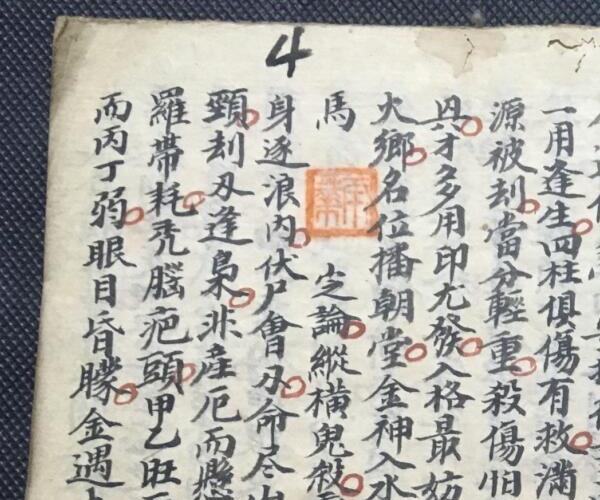 4
一用逢生四柱俱傷有救滿
源被刦當分輕重殺傷怕
丹才多用印尤發入格最妨
火鄉名位播朝堂金神入水
馬 定論縱橫鬼殺
身逐浪内伏尸會刃命尽
頸刦刃逢梟非産厄而懸
羅帶耗秃腦疤頭甲乙旺
而丙丁弱眼目昏矇金遇